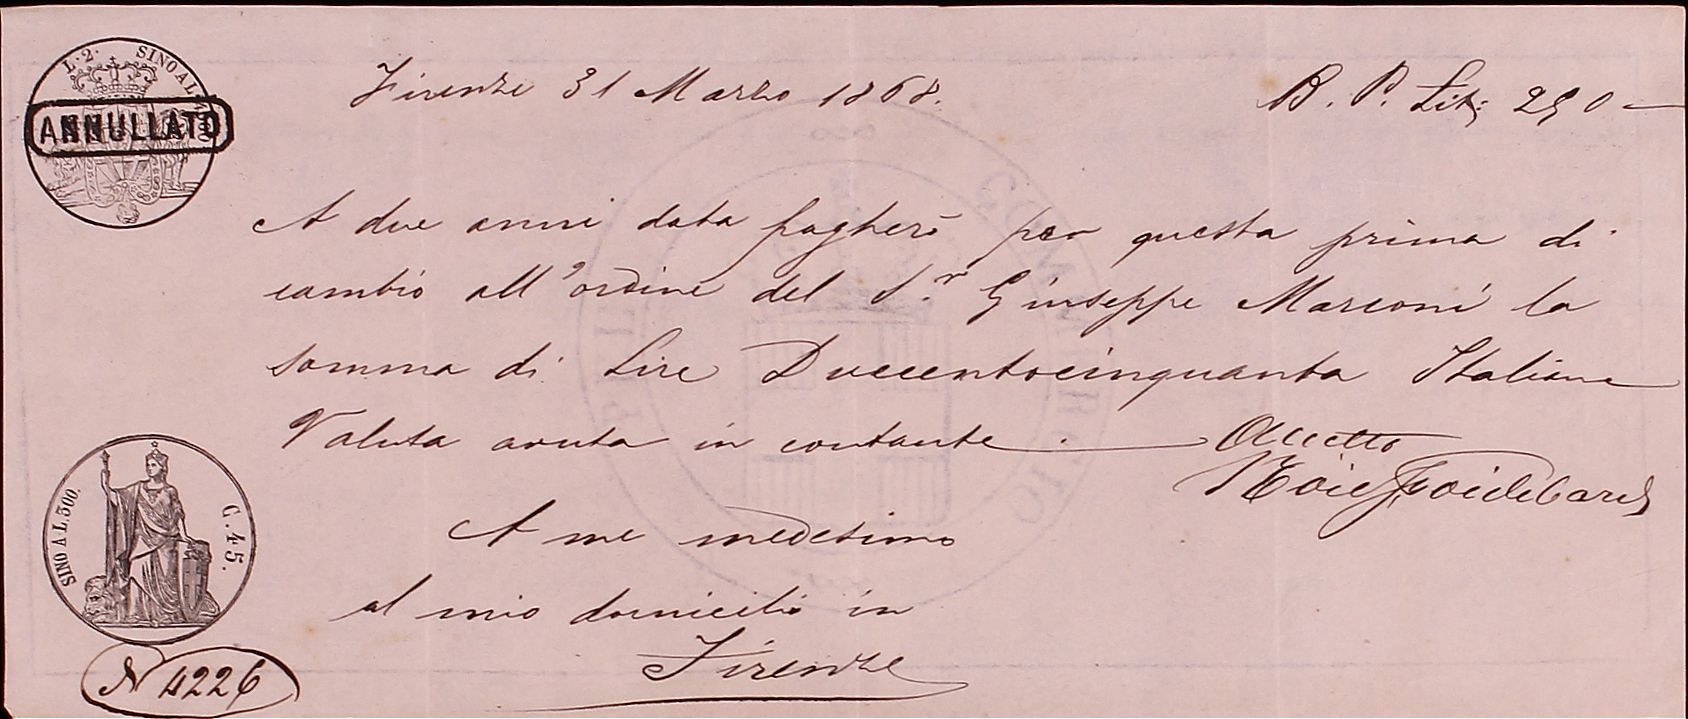 L. 2. SINO AL
ANNULLATO
Firenze 31 Marzo 1868.
B. P. Lit: 250 —
A due anni data pagherò per questa prima di
cambio all'ordine del S.r Giuseppe Marconi la
somma di Lire Duecentocinquanta Italiane
Valuta avuta in contante. — Accetto
A me medesimo
al mio domicilio in
Firenze
SINO A L. 300.
C. 45.
N 4226